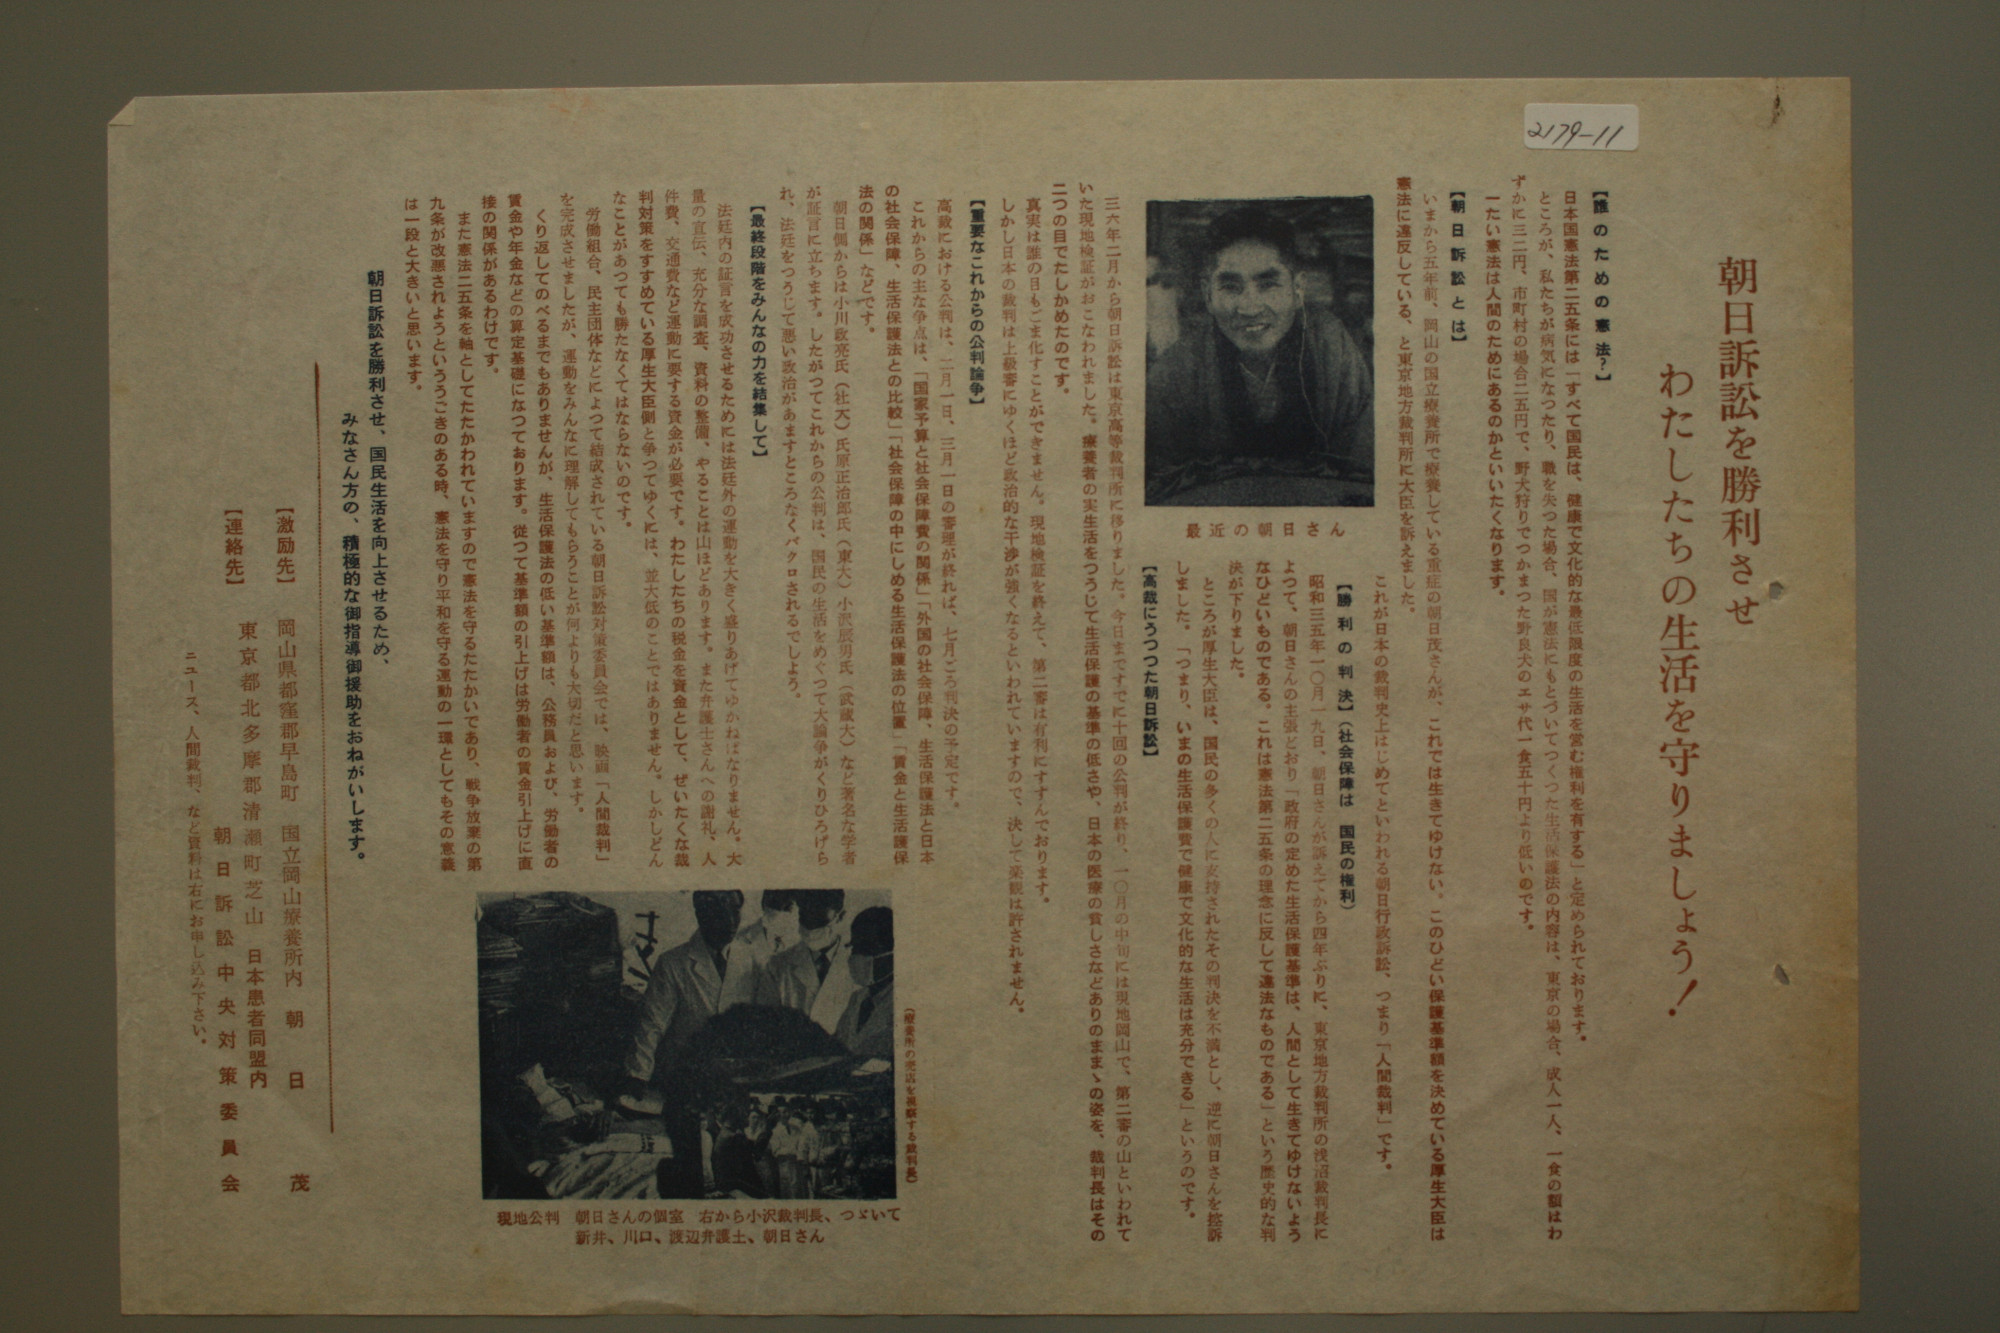 2179-11
朝日訴訟を勝利させ
わたしたちの生活を守りましょう!
【誰のための憲法?】
日本国憲法第二五条には「すべて国民は、健康で文化的な最低限度の生活を営む権利を有する」と定められております。
ところが、私たちが病気になつたり、職を失つた場合、国が憲法にもとづいてつくつた生活保護法の内容は、東京の場合、成人一人、一食の額はわ
ずかに三二円、市町村の場合二五円で、野犬狩りでつかまつた野良犬のエサ代一食五十円より低いのです。
一たい憲法は人間のためにあるのかといいたくなります。
【朝日訴訟とは】
いまから五年前、岡山の国立療養所で療養している重症の朝日茂さんが、これでは生きてゆけない、このひどい保護基準額を決めている厚生大臣は
憲法に違反している、と東京地方裁判所に大臣を訴えました。
これが日本の裁判史上はじめてといわれる朝日行政訴訟、つまり「人間裁判」です。
【勝利の判決】(社会保障は 国民の権利)
昭和三五年一〇月一九日、朝日さんが訴えてから四年ぶりに、東京地方裁判所の浅沼裁判長に
よつて、朝日さんの主張どおり「政府の定めた生活保護基準は、人間として生きてゆけないよう
なひどいものである。これは憲法第二五条の理念に反して違法なものである」という歴史的な判
決が下りました。
ところが厚生大臣は、国民の多くの人に支持されたその判決を不満とし、逆に朝日さんを控訴
しました。「つまり、いまの生活保護費で健康で文化的な生活は充分できる」というのです。
【高裁にうつつた朝日訴訟】
最近の朝日さん
三六年二月から朝日訴訟は東京高等裁判所に移りました。今日まですでに十回の公判が終り、一〇月の中旬には現地岡山で、第二審の山といわれて
いた現地検証がおこなわれました。療養者の実生活をつうじて生活保護の基準の低さや、日本の医療の貧しさなどありのまゝの姿を、裁判長はその
二つの目でたしかめたのです。
真実は誰の目もごま化すことができません。現地検証を終えて、第二審は有利にすすんでおります。
しかし日本の裁判は上級審にゆくほど政治的な干渉が強くなるといわれていますので、決して楽観は許されません。
【重要なこれからの公判論争】
高裁における公判は、二月一日、三月一日の審理が終れば、七月ごろ判決の予定です。
これからの主な争点は、「国家予算と社会保障費の関係」「外国の社会保障、生活保護法と日本
の社会保障、生活保護法との比較」「社会保障の中にしめる生活保護法の位置」「賃金と生活護保
法の関係」などです。
朝日側からは小川政亮氏(社大)氏原正治郎氏(東大)小沢辰男氏(武蔵大)など著名な学者
が証言に立ちます。したがつてこれからの公判は、国民の生活をめぐつて大論争がくりひろげら
れ、法廷をつうじて悪い政治があますところなくバクロされるでしよう。
【最終段階をみんなの力を結集して】
法廷内の証言を成功させるためには法廷外の運動を大きく盛りあげてゆかねばなりません。大
量の宣伝、充分な調査、資料の整備、やることは山ほどあります。また弁護士さんへの謝礼、人
件費、交通費など運動に要する資金が必要です。わたしたちの税金を資金として、ぜいたくな裁
判対策をすすめている厚生大臣側と争つてゆくには、並大低のことではありません。しかしどん
なことがあつても勝たなくてはならないのです。
労働組合、民主団体などによつて結成されている朝日訴訟対策委員会では、映画「人間裁判」
を完成させましたが、運動をみんなに理解してもらうことが何よりも大切だと思います。
くり返してのべるまでもありませんが、生活保護法の低い基準額は、公務員および、労働者の
賃金や年金などの算定基礎になつております。従つて基準額の引上げは労働者の賃金引上げに直
接の関係があるわけです。
また憲法二五条を軸としてたたかわれていますので憲法を守るたたかいであり、戦争放棄の第
九条が改悪されようといううごきのある時、憲法を守り平和を守る運動の一環としてもその意義
は一段と大きいと思います。
(療養所の売店を視察する裁判長)
現地公判 朝日さんの個室 右から小沢裁判長、つゞいて
新井、川口、渡辺弁護士、朝日さん
朝日訴訟を勝利させ、国民生活を向上させるため、
みなさん方の、積極的な御指導御援助をおねがいします。
【激励先】 岡山県都窪郡早島町 国立岡山療養所内 朝日 茂
【連絡先】 東京都北多摩郡清瀬町芝山 日本患者同盟内
朝日訴訟中央対策委員会
ニュース、人間裁判、など資料は右にお申し込み下さい。